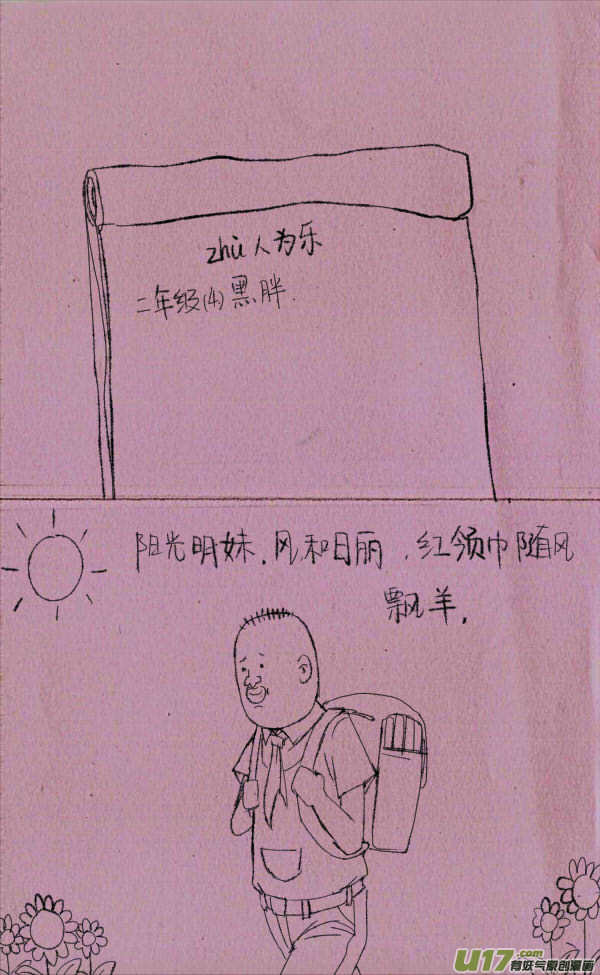 zhù人为乐
二年级(4)黑胖.
阳光明妹.风和日丽.红领巾随风
飘羊.
U17.com
有妖气原创漫画